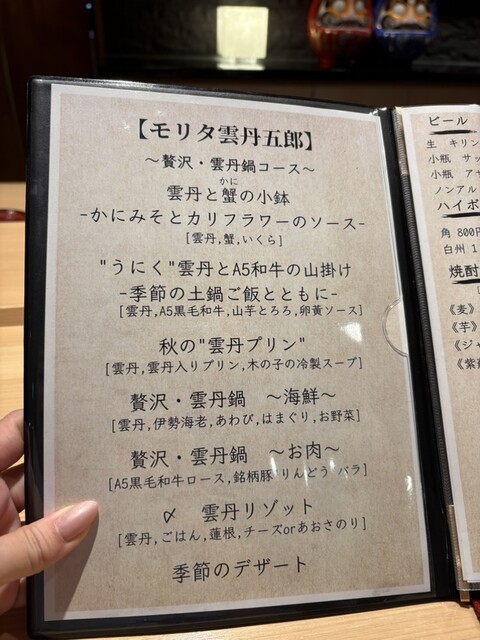 【モリタ雲丹五郎】
～贅沢・雲丹鍋コース～
かに
雲丹と蟹の小鉢
-かにみそとカリフラワーのソース-
[雲丹,蟹,いくら]
"うにく"雲丹とA5和牛の山掛け
-季節の土鍋ご飯とともに-
[雲丹,A5黒毛和牛,山芋とろろ,卵黄ソース]
秋の"雲丹プリン"
[雲丹,雲丹入りプリン,木の子の冷製スープ]
贅沢・雲丹鍋 ～海鮮～
[雲丹,伊勢海老,あわび,はまぐり,お野菜]
贅沢・雲丹鍋 ～お肉～
[A5黒毛和牛ロース,銘柄豚 りんどう バラ]
〆 雲丹リゾット
[雲丹,ごはん,蓮根,チーズorあおさのり]
季節のデザート
ビール
生 キリン
小瓶 サッ
小瓶 アサ
ノンアル
ハイボ
角 800円
白州 1
焼酎
《麦》
《芋》
《ジャ
《紫蘇